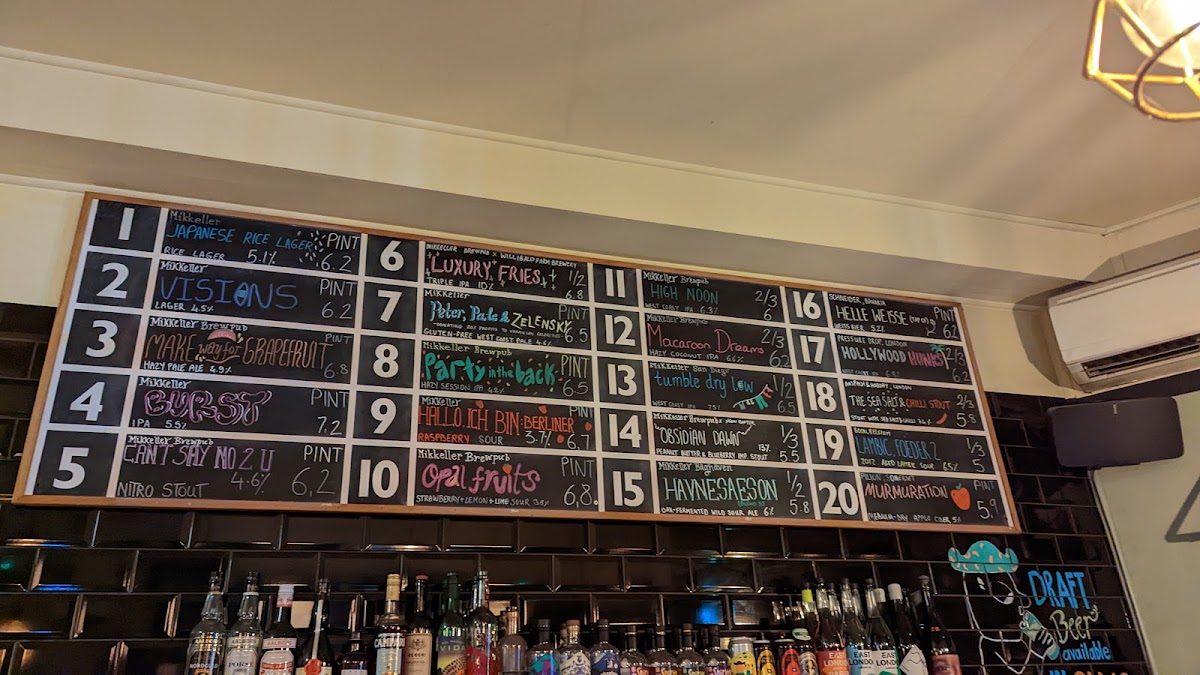 1
Mikkeller
JAPANESE RICE LAGER PINT
RICE LAGER 5.1% 6.2
2
Mikkeller
VISIONS PINT
LAGER 4.5% 6.2
3
Mikkeller Brewpub
MAKE way for GRAPEFRUIT PINT
HAZY PALE ALE 4.9% 6.8
4
Mikkeller
BURST PINT
IPA 5.5% 7.2
5
Mikkeller Brewpub
CAN'T SAY NO 2 U PINT
NITRO STOUT 4.6% 6,2
6
MIKKELLER BREWPUB x WILLIBALD FARM BREWERY
LUXURY, FRIES, 1/2
TRIPLE IPA 10% 6.8
7
Mikkeller
Peter, Pale & ZELENSKY PINT
GLUTEN-FREE WEST COAST PALE 4.6% 6.5
8
Mikkeller Brewpub
Party in the back PINT
HAZY SESSION IPA 4.2% 6.5
9
Mikkeller
HALLO, ICH BIN BERLINER PINT
RASPBERRY SOUR 3.7% 6,7
10
Mikkeller Brewpub
Opal fruits PINT
STRAWBERRY + LEMON + LIME SOUR 3.8% 6,8.
11
Mikkeller Brewpub
HIGH NOON 2/3
WEST COAST IPA 6.3% 6
12
Mikkeller Brewpub
Macaroon Dreams 2/3
HAZY COCONUT IPA 6.6% 6.2
13
Mikkeller San Diego
tumble dry low 1/2
WEST COAST IPA 7.5% 6.5
14
Mikkeller Brewpub
"OBSIDIAN DAWN" 1/3
PEANUT BUTTER & BLUEBERRY IMP. STOUT 13% 5.5
15
Mikkeller Baghaven
HAVNESAESON 1/2
OAK-FERMENTED WILD SOUR ALE 6% 5.8
16
SCHNEIDER, BAVARIA
HELLE WEISSE PINT
WEISS BIER 5.2% 6.2
17
PRESSURE DROP, LONDON
HOLLYWOOD HUNKS 2/3
WEST COAST IPA 6.2
18
LONDON
THE SEA SALT & CHILLI STOUT 2/3
5.8
19
LAMBIC, FOEDER 2 1/3
2012 AGED LAMBIC SOUR 6.5% 5
20
PILTON, SOMERSET
MURMURATION PINT
NEBULA-DAY APPLE CIDER 5% 5.9
DRAFT
Beer
available
EAST
LONDON
EAST
LONDON
EAST
LONDON